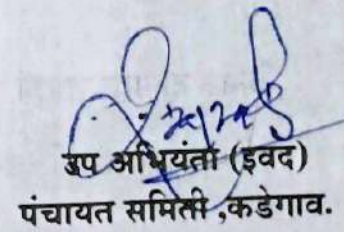 उप अभियंता (इवद)
पंचायत समिती ,कडेगाव.